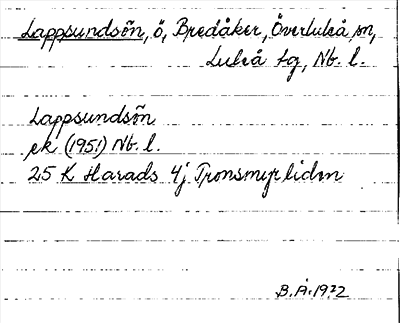 Lappsundsön, ö, Bredåker, Överluleå sn,
Luleå tg, Nb. l.
Lappsundsön
ek (1951) Nb. l.
25 K Harads 4j Tronsmyrliden
B.Å. 1972